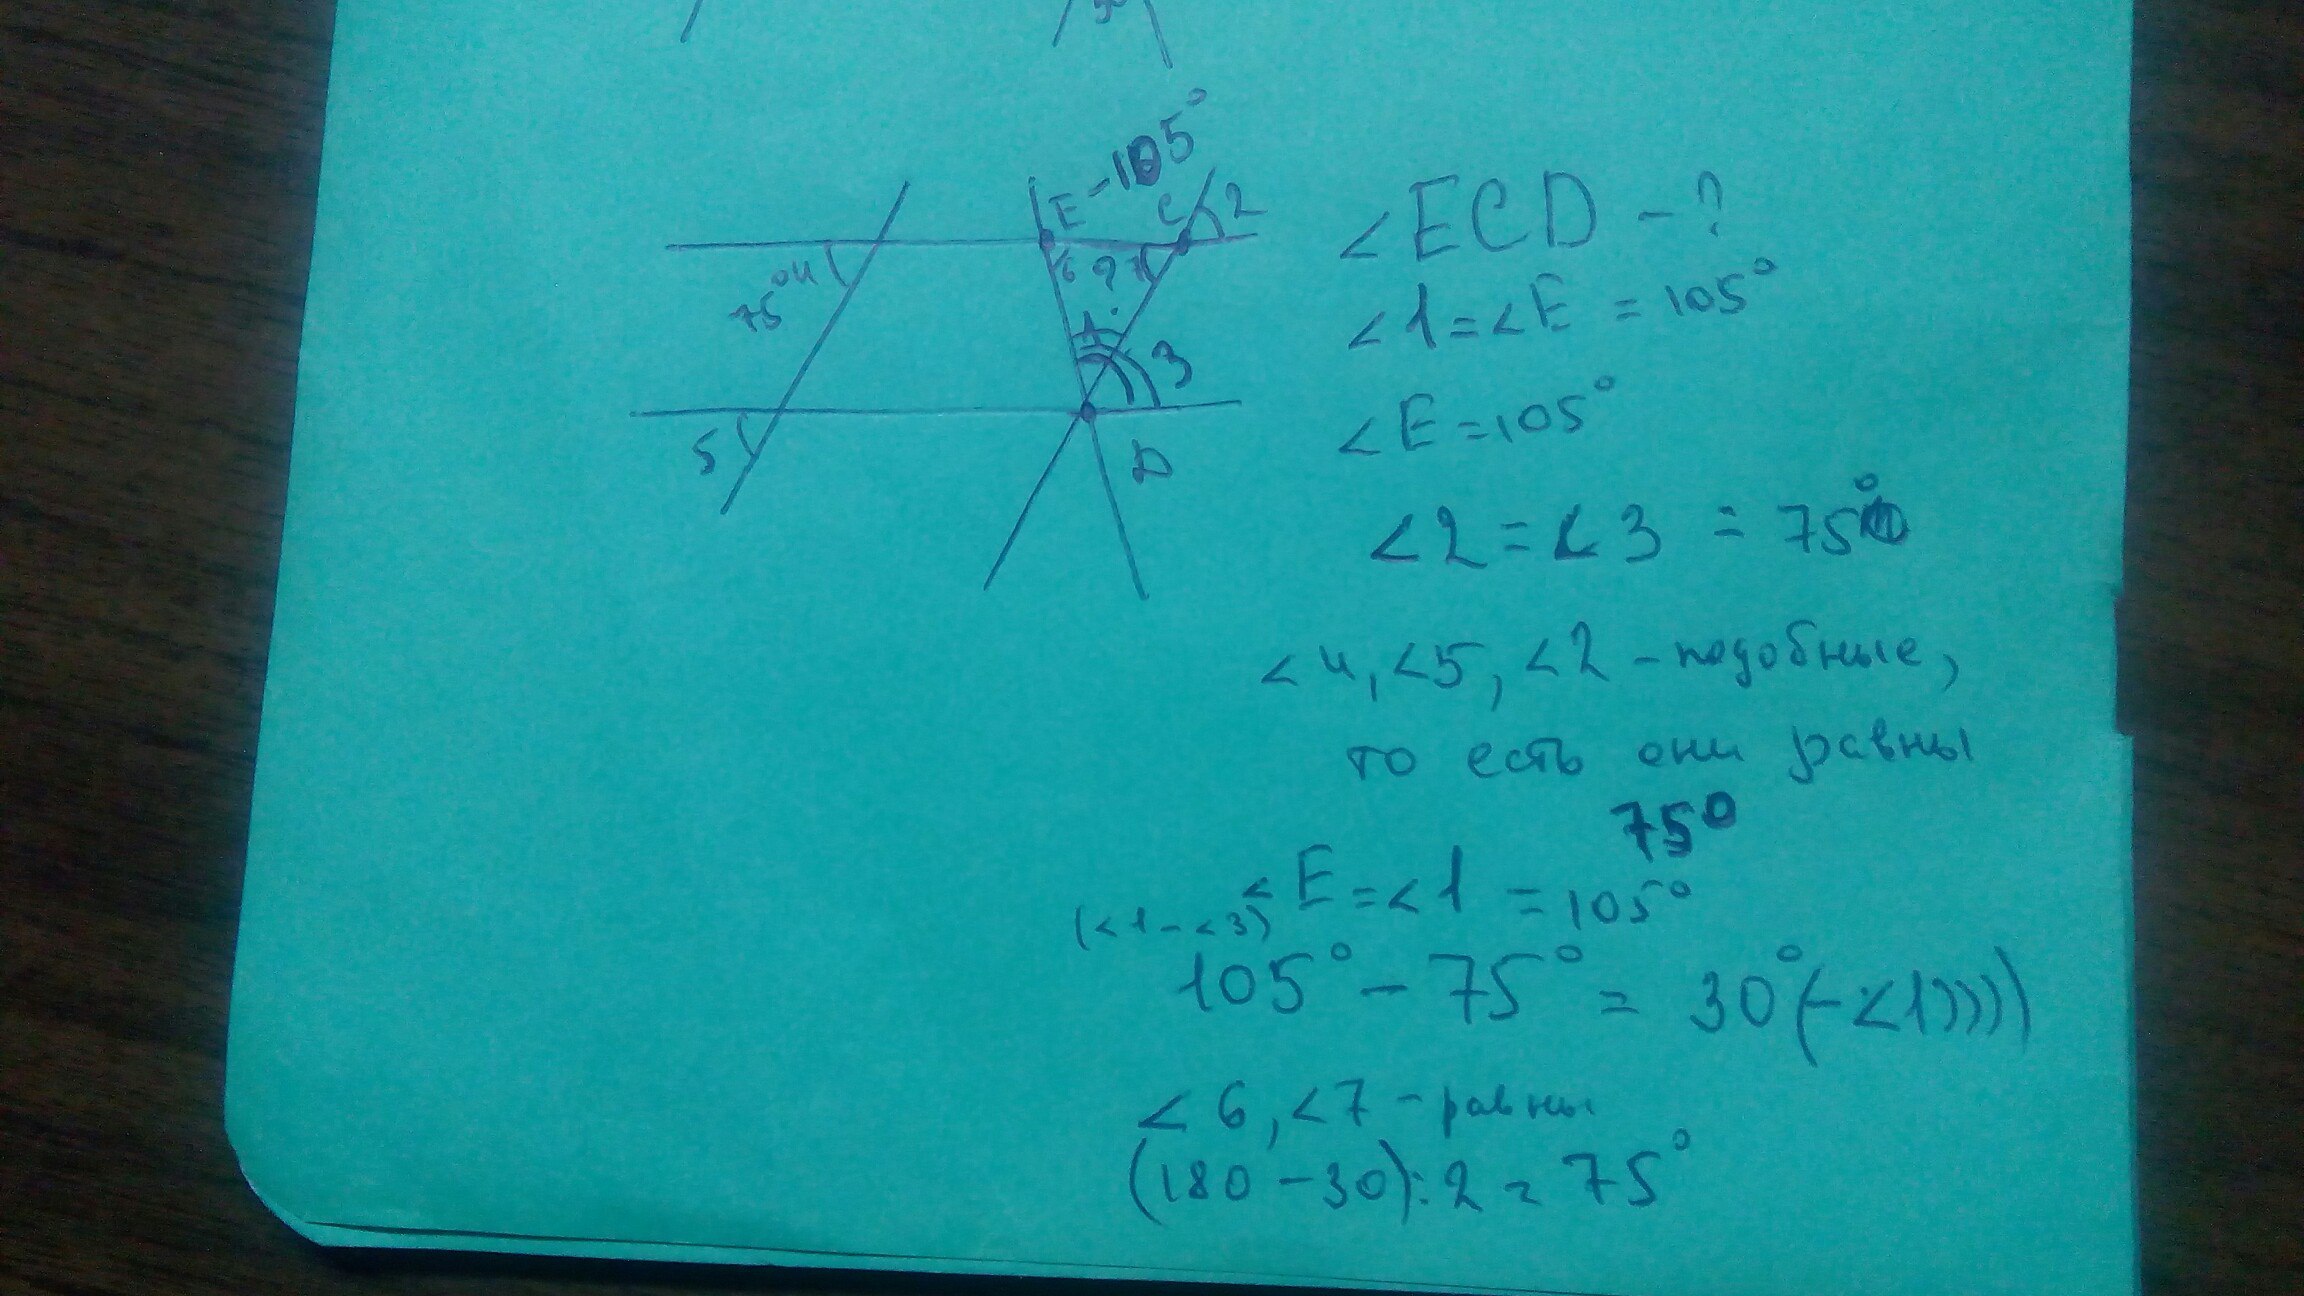 E - 105°
C
2
75°
4
6
?
7
1
3
5
D
<ECD - ?
<1 = <E = 105°
<E = 105°
<2 = <3 = 75°
<4, <5, <2 - подобные,
то есть они равны
75°
<E = <1 = 105°
(<1 - <3)
105° - 75° = 30° (- <1))))
<6, <7 - равны
(180 - 30) : 2 = 75°